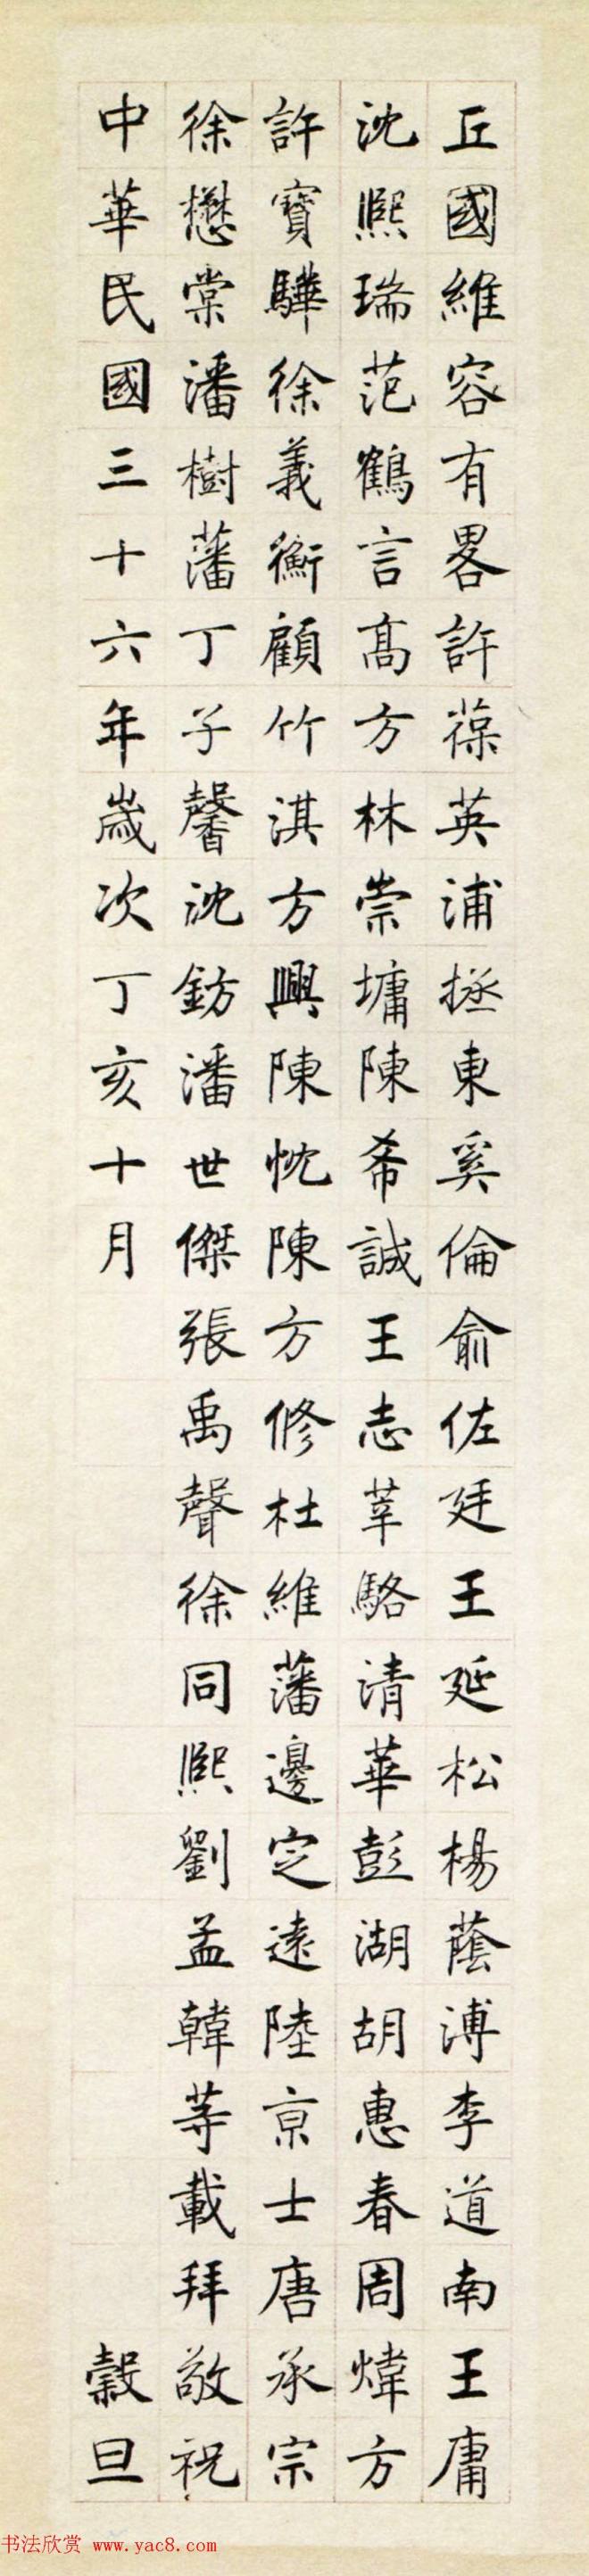 丘國維容有畧許葆英浦拯東奚倫俞佐廷王延松楊蔭溥李道南王庸
沈熙瑞范鶴言髙方林崇墉陳希誠王志莘駱清華彭湖胡惠春周煒方
許寶驊徐義衡顧竹淇方興陳忱陳方修杜維藩邊定遠陸京士唐承宗
徐懋棠潘樹藩丁子馨沈鈁潘世傑張禹聲徐同熙劉孟韓等載拜敬祝
中華民國三十六年歲次丁亥十月穀旦
书法欣赏 www.yac8.com